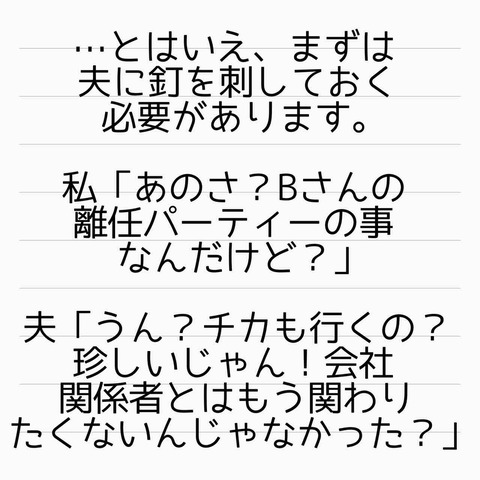 …とはいえ、まずは
夫に釘を刺しておく
必要があります。
私「あのさ？Bさんの
離任パーティーの事
なんだけど？」
夫「うん？チカも行くの？
珍しいじゃん！会社
関係者とはもう関わり
たくないんじゃなかった？」